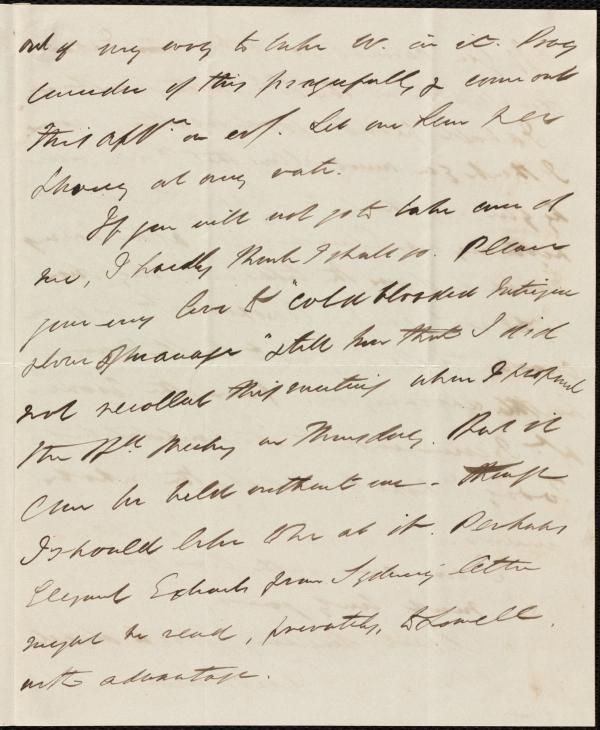 out of my way to take W. in it. Pray
consider of this prayerfully & come out
this aftn. or eve. Let me hear
at any rate.
If you will not go to take care of
me, I hardly think I shall go. Please
give my love & "cold blooded intrigue
" tell her that I did
not recollect this meeting when I proposed
the Bd. Meeting on Thursday. But it
can be held without me - though
I should like to be at it. Perhaps
Elegant Extracts from Sydney's letter
might be read, privately, to Lowell,
with advantage.